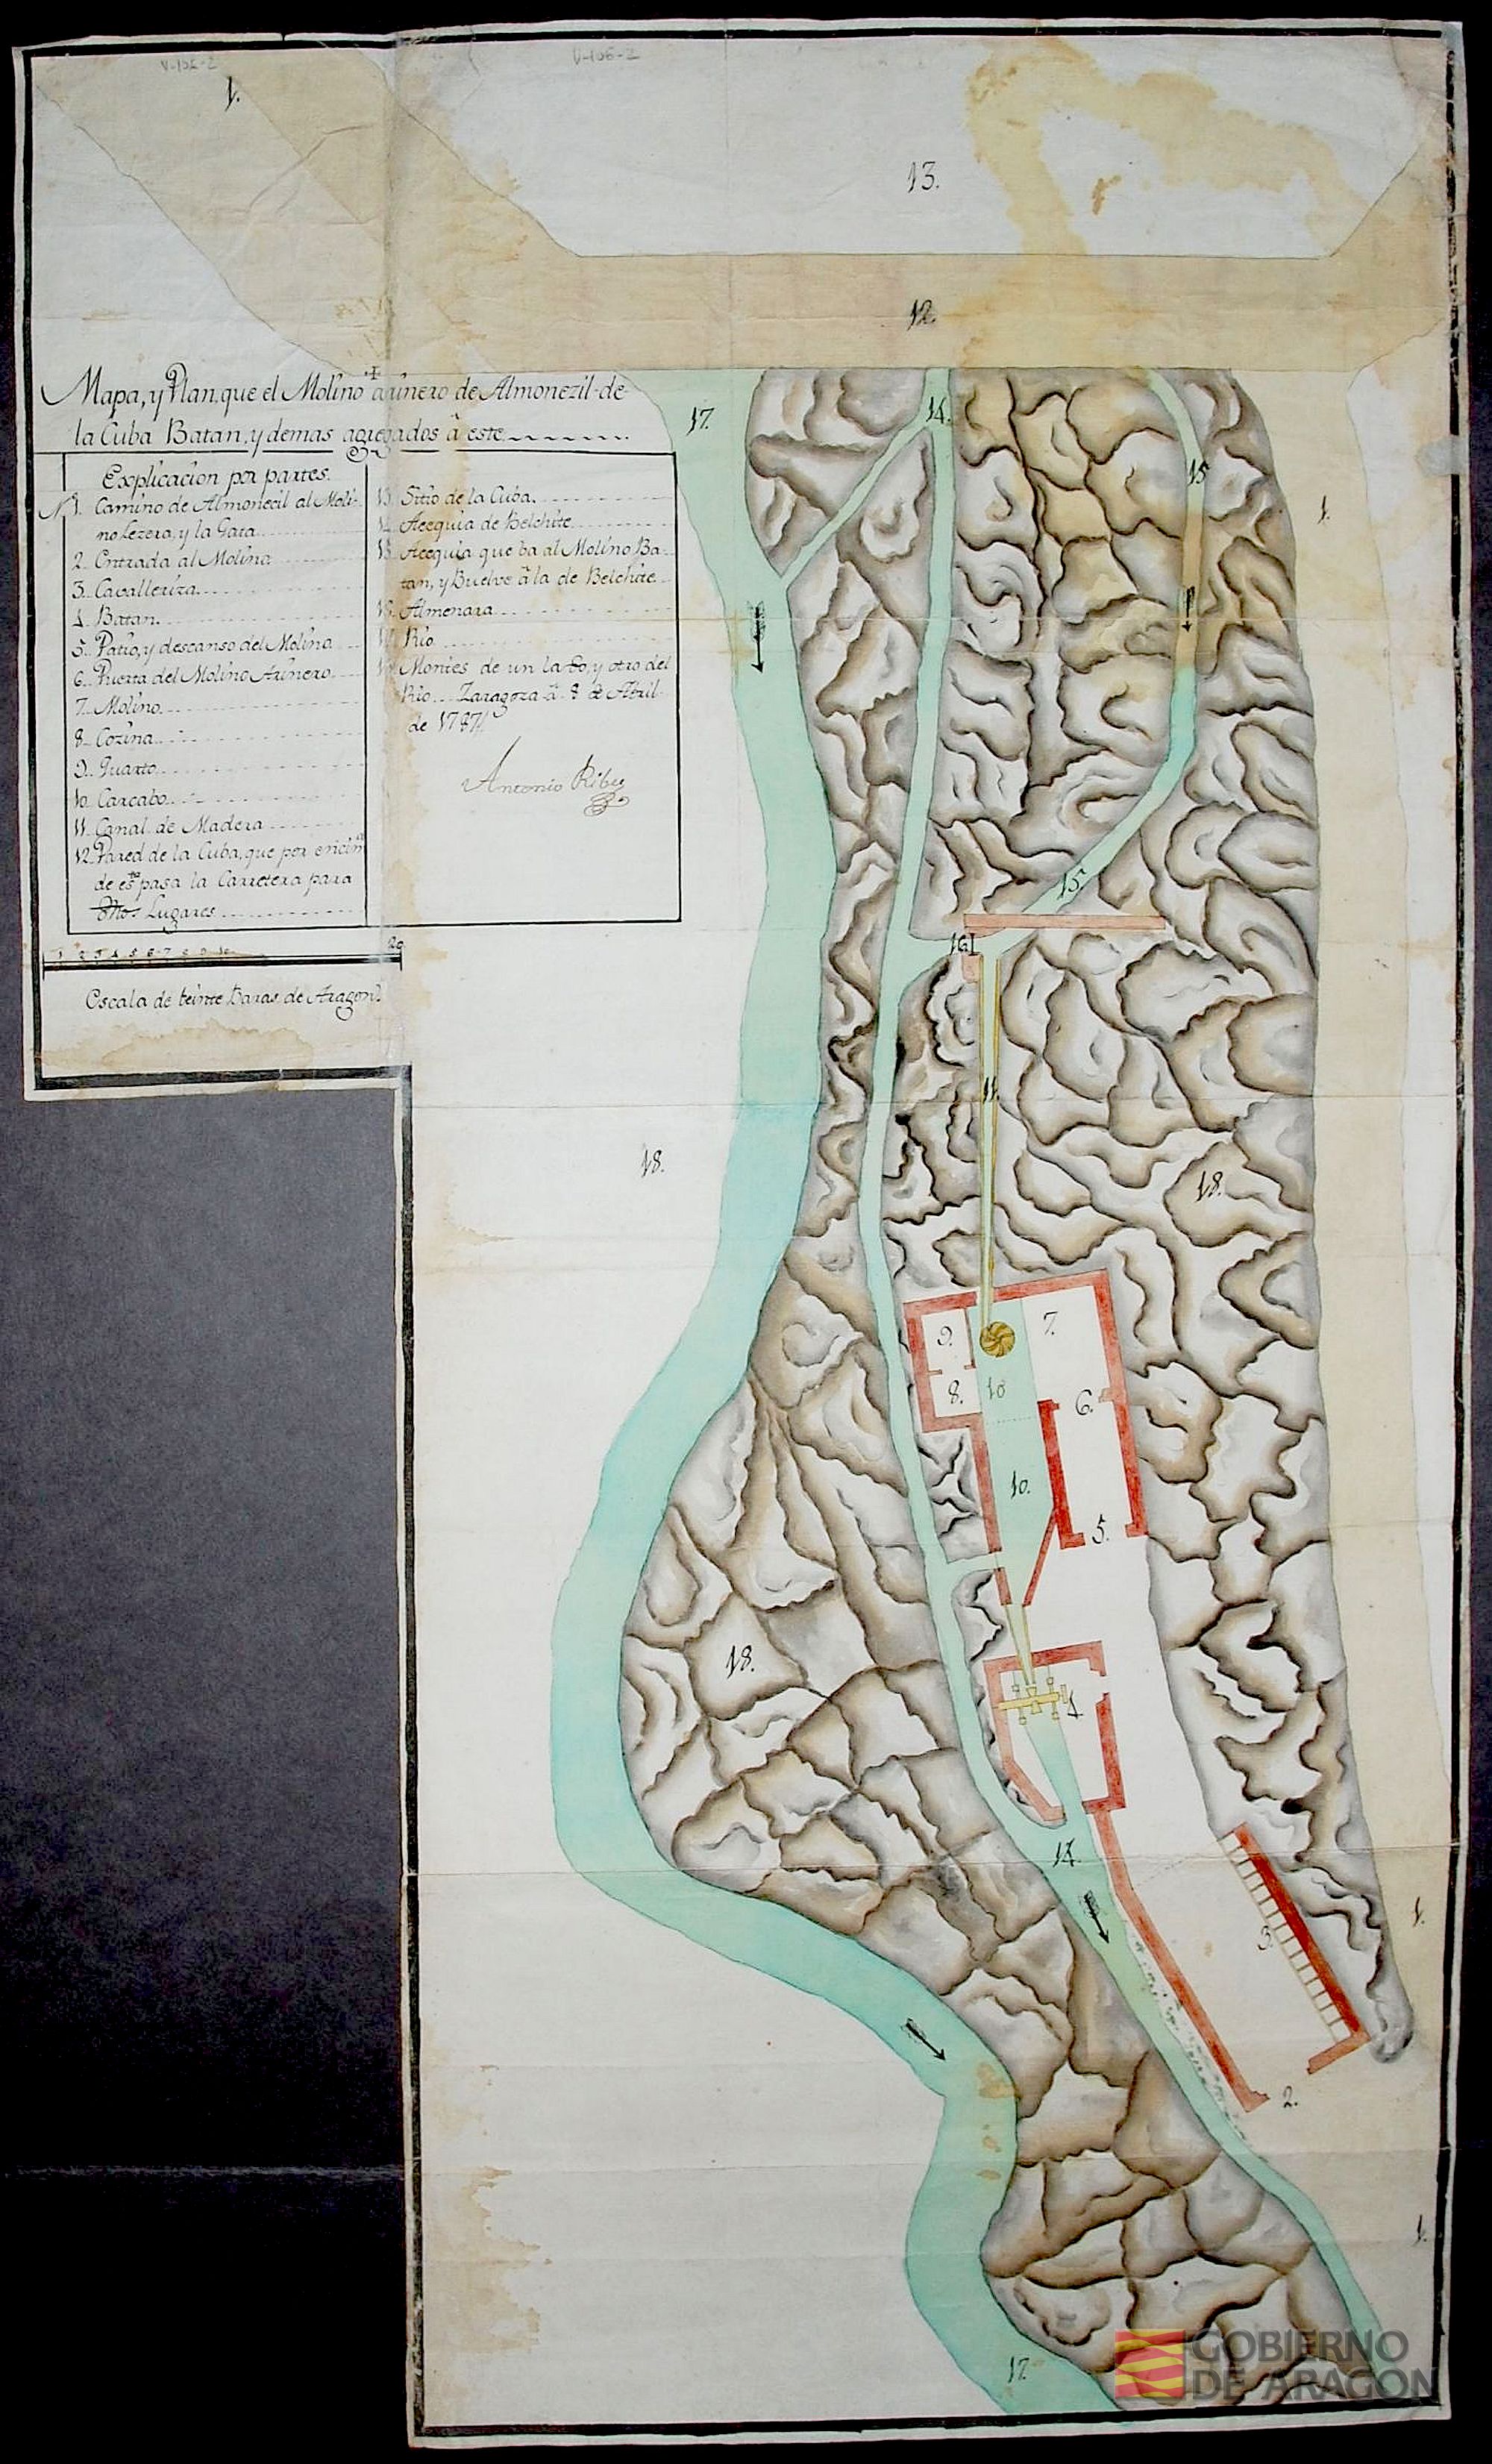 V-106-2
V-106-2
1.
13.
12.
Mapa, y Plan que el Molino arinero de Almonezil-de-
la Cuba Batan, y demas agregados â este
Explicacion por partes.
Nº 1. Camino de Almonecil al Moli-
no Lezera, y la Gata
2. Entrada al Molino
3. Cavalleriza
4. Batan
5. Patio, y descanso del Molino
6. Puerta del Molino Arinero
7. Molino
8. Cozina
9. Quarto
10. Carcabo
11. Canal de Madera
12. Pared de la Cuba, que por encim
de esta pasa la Carretera para
Lugares
13. Sitio de la Cuba.
14. Acequia de Belchite
15. Acequia que ba al Molino Ba-
tan, y Buelve â la de Belchite
16. Almenara
17. Rio
18. Montes de un lado, y otro del
Rio. Zaragoza â 8 de Abril
de 1787
Antonio Ribes
1 2 3 4 5 6 7 8 9 10 20
Escala de beinte baras de Aragon
17.
14.
15
1.
15.
16
11.
18.
18.
9.
7.
8.
10
6.
10.
5.
18.
4
14.
3.
1.
2.
1.
17.
GOBIERNO
DE ARAGON